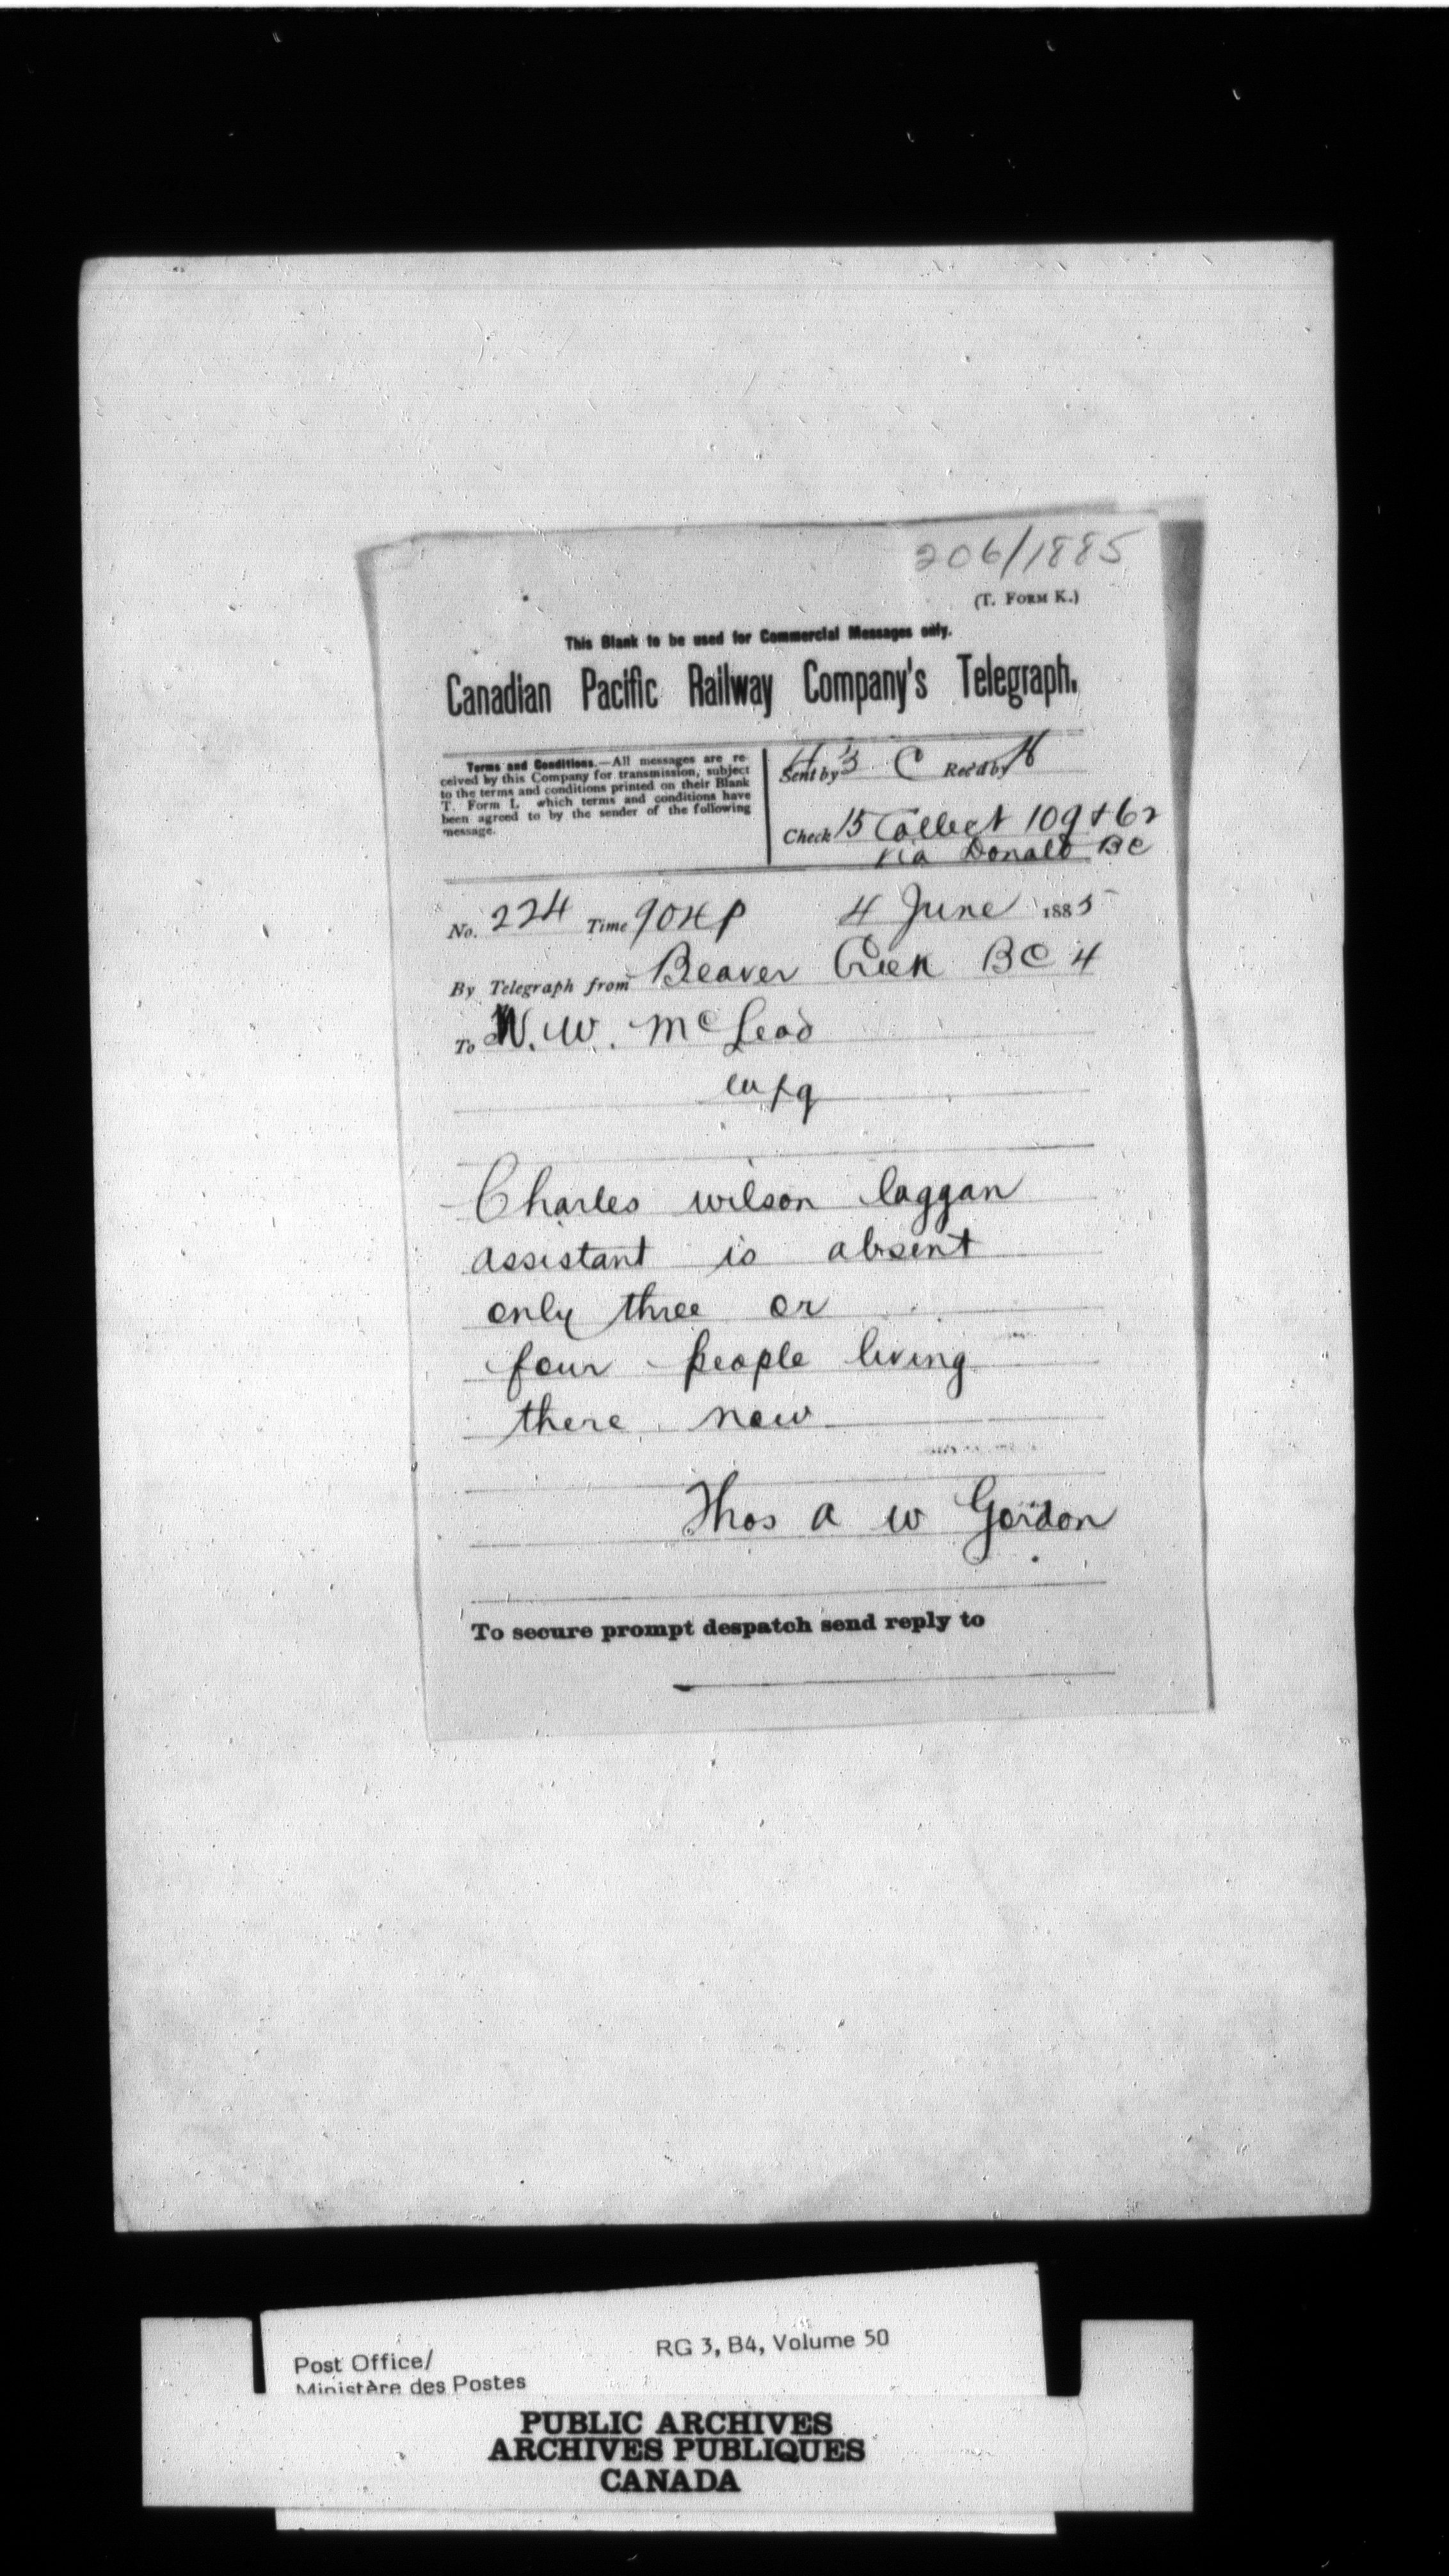 206/1885
(T. FORM K.)
This Blank to be used for Commercial Messages only.
Canadian Pacific Railway Company's Telegraph.
Terms and Conditions.—All messages are re-
ceived by this Company for transmission, subject
to the terms and conditions printed on their Blank
T. Form 1, which terms and conditions have
been agreed to by the sender of the following
message.
Sent by C Rec'd by H
Check 15 Collect 109 & 62
via Donald BC
No. 224 Time 904P 4 June 1885
By Telegraph from Beaver Creek BC 4
To W. W. McLeod
wpg
Charles wilson laggan
assistant is absent
only three or
four people living
there now
Thos a w Gordon
To secure prompt despatch send reply to
Post Office/
Ministère des Postes
RG 3, B4, Volume 50
PUBLIC ARCHIVES
ARCHIVES PUBLIQUES
CANADA